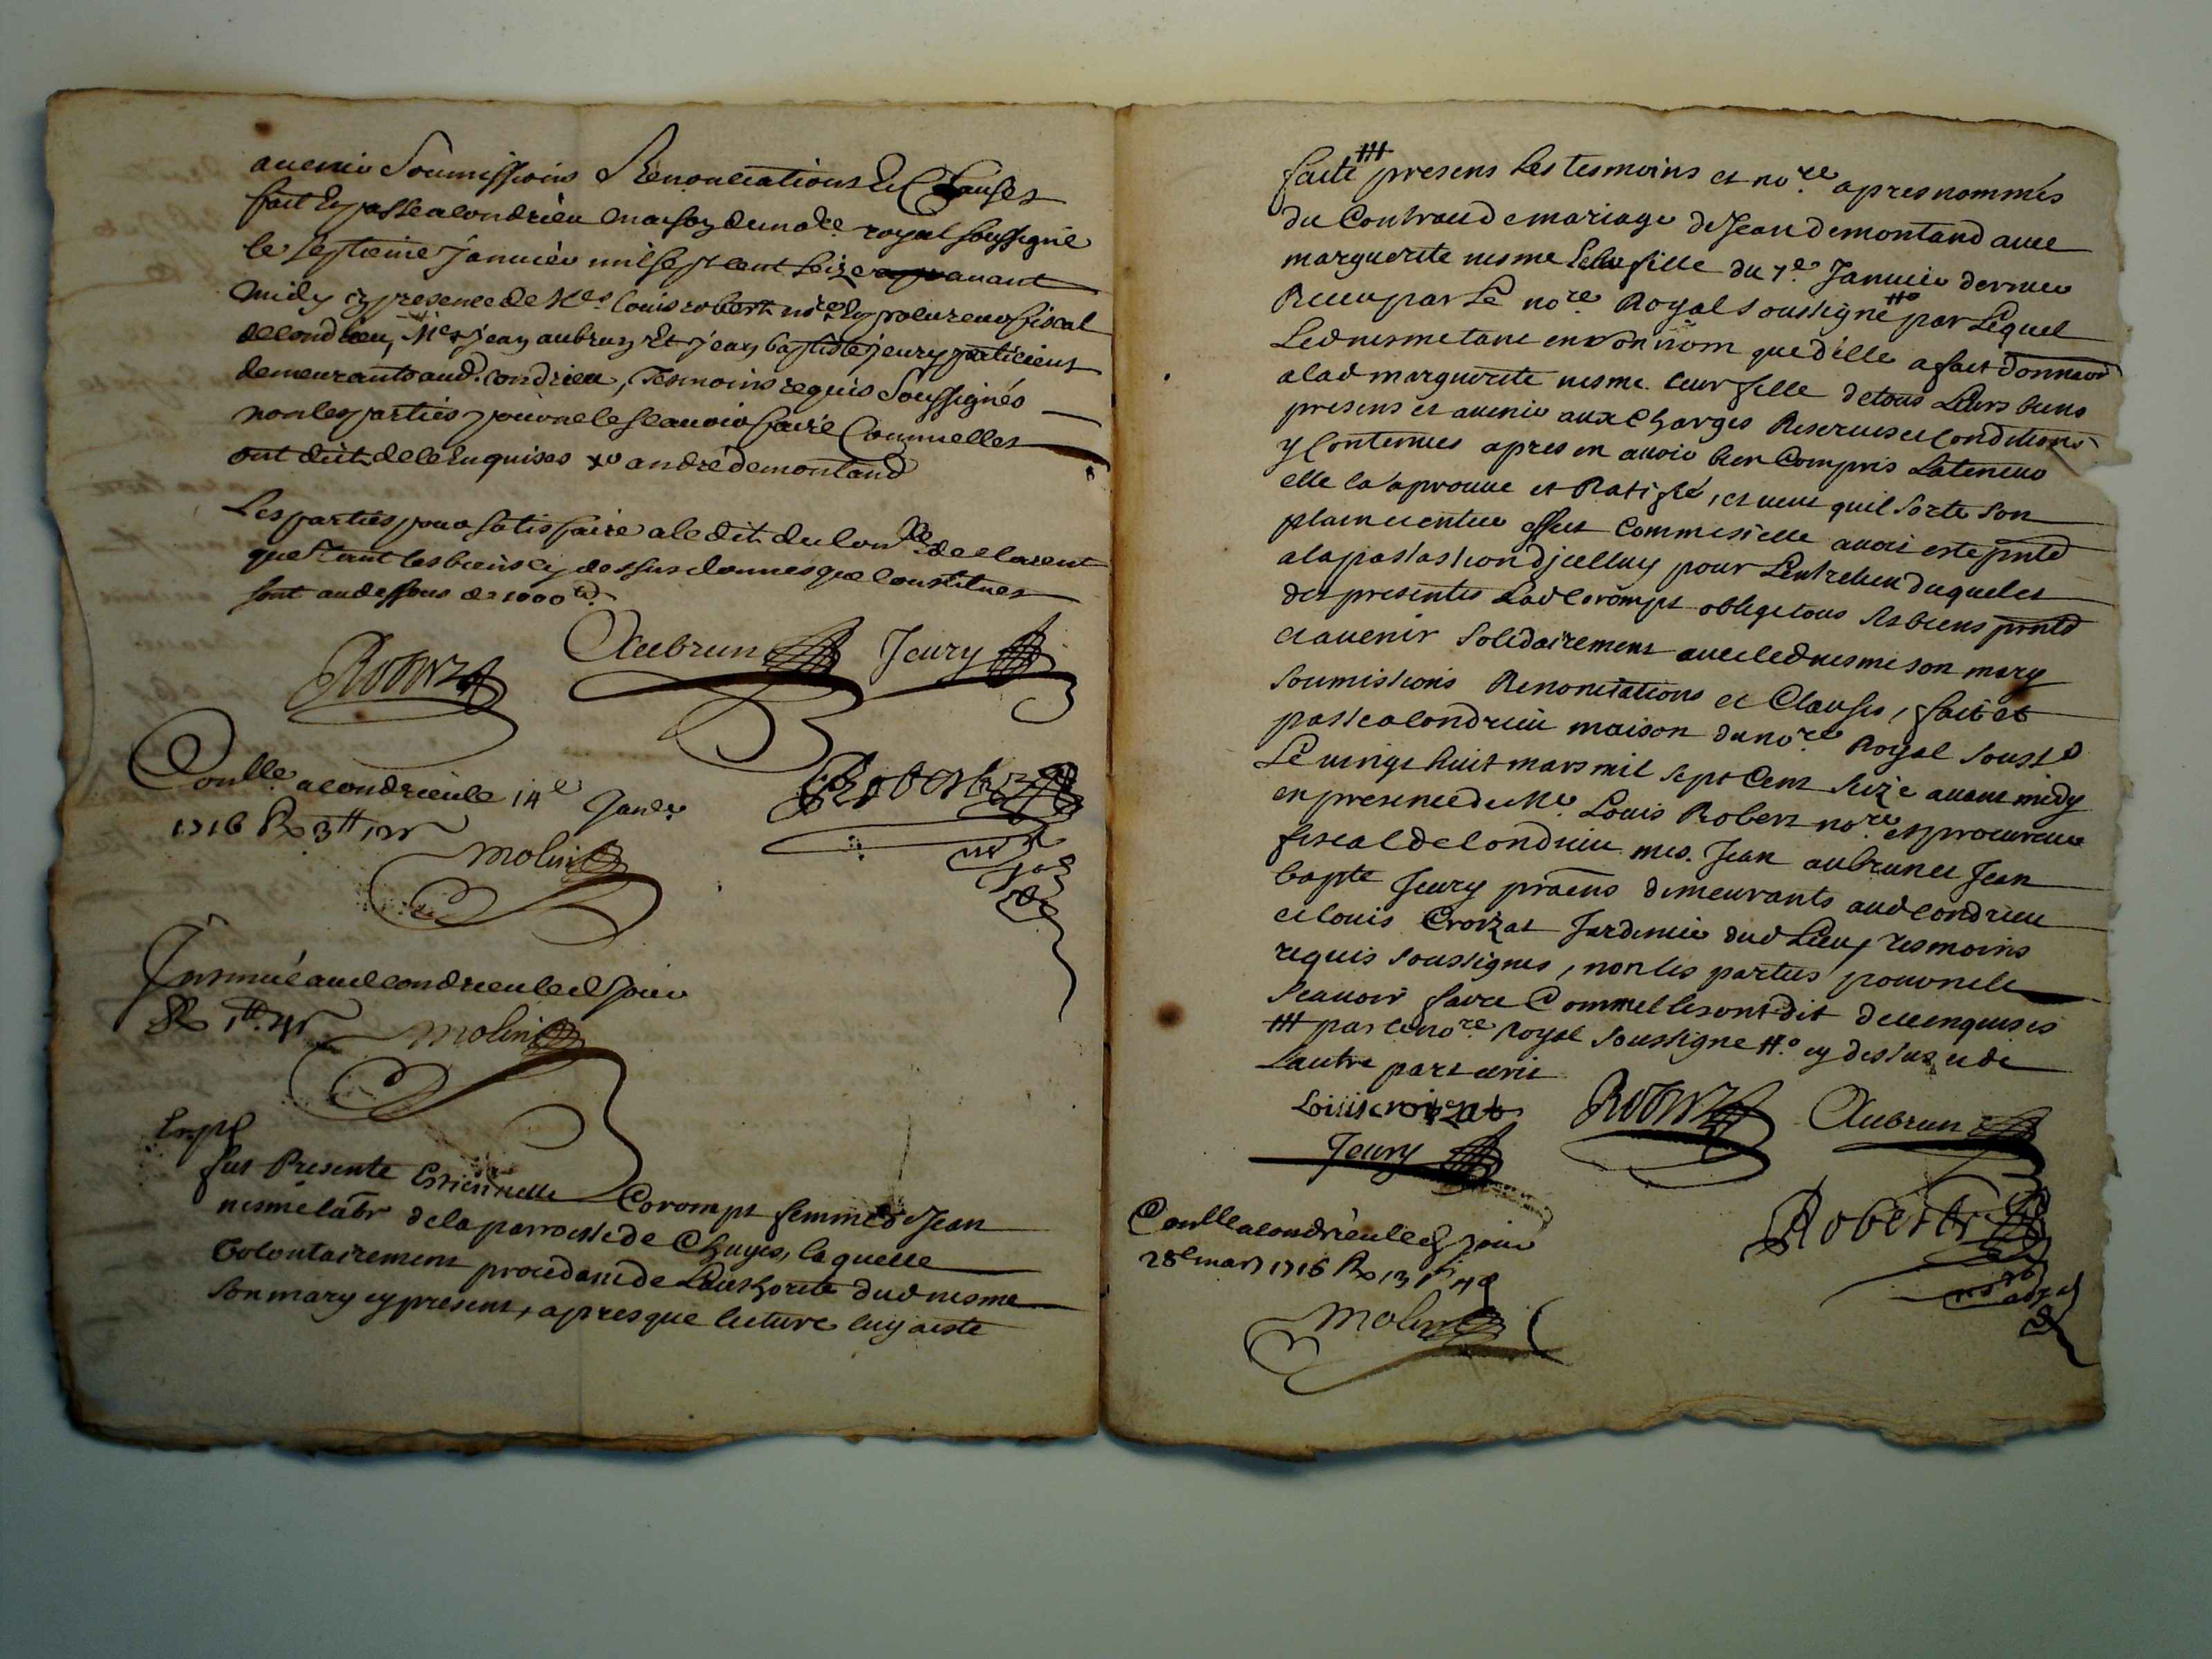 auenir Soumissions Renonciations Et Clauses
fait Et passé a Condrieu maison du no.re royal soussigné
le septieme januier mil sept cent seize auant
midy en presence de Me Louis robert no.re Et procureur fiscal
de Condrieu, Mes jean aubrun Et jean baptiste jeury praticiens
demeurants aud. Condrieu, Tesmoins requis Soussignés
non les parties pour ne le scauoir faire Comme elles
ont dit de ce Enquises andré demontand
Les parties pour satisfaire a ledit du Con.lle declarent
que tant les biens cy dessus donnes que Constitues
sont au dessous de 1000 lt.
Robert Aubrun Jeury
Conlle. a condrieu le 14e Janer
1716 R 3tt
Molin
Roberts
Insinué aud condrieu led jour
R 1tt. 4s
Molin
Expé
fut Presente Estiennette Corompt femme de Jean
nesme labr de la parroisse de Chuyes, laquelle
Volontairement procedant de Lauthorité dud nesme
son mary cy present, apres que lecture luy a esté
faite ttt presens les tesmoins et no.re apres nommés
du Contract de mariage de Jean demontand auec
marguerite nesme fille du 7e. Januier dernier
Receu par Le no.re Royal soussigné tto par Lequel
Led nesme tant en son nom que d'elle a fait donnaon
a lad marguerite nesme leur fille de tous Leurs biens
presens et auenir aux Charges Reserues et Conditions
y Contenues apres en auoir bien Compris La teneur
elle la aprouue et Ratifié, et ueut quil sorte son
plain et entier effect Comme si elle auoit esté pnte
a la passassion d'jcelluy pour Lentretien duquel et
des presentes Lad Corompt oblige tous ses biens pnts
et auenir Solidairement auec led nesme son mary
Soumissions Renonciations et Clauses, fait et
passé a Condrieu maison du no.re Royal souss.é
Le vingt huit mars mil sept Cent seize auant midy
en presence de Me. Louis Robert no.re et procureur
fiscal de Condrieu mes. Jean aubrun et Jean
bapte Jeury praens demeurants aud Condrieu
et louis Croizat Jardinier dud Lieu, tesmoins
requis soussignes, non les parties pour ne le
scauoir faire Comme elles ont dit de ce enquises
ttt par le no.re Royal soussigne tt.o cy dessus et de
Lautre part ecrit
Louis croizat Robert Aubrun
Jeury
Conlle a condrieu led jour
28e mars 1716 R 13s 4d
Roberts
Molin